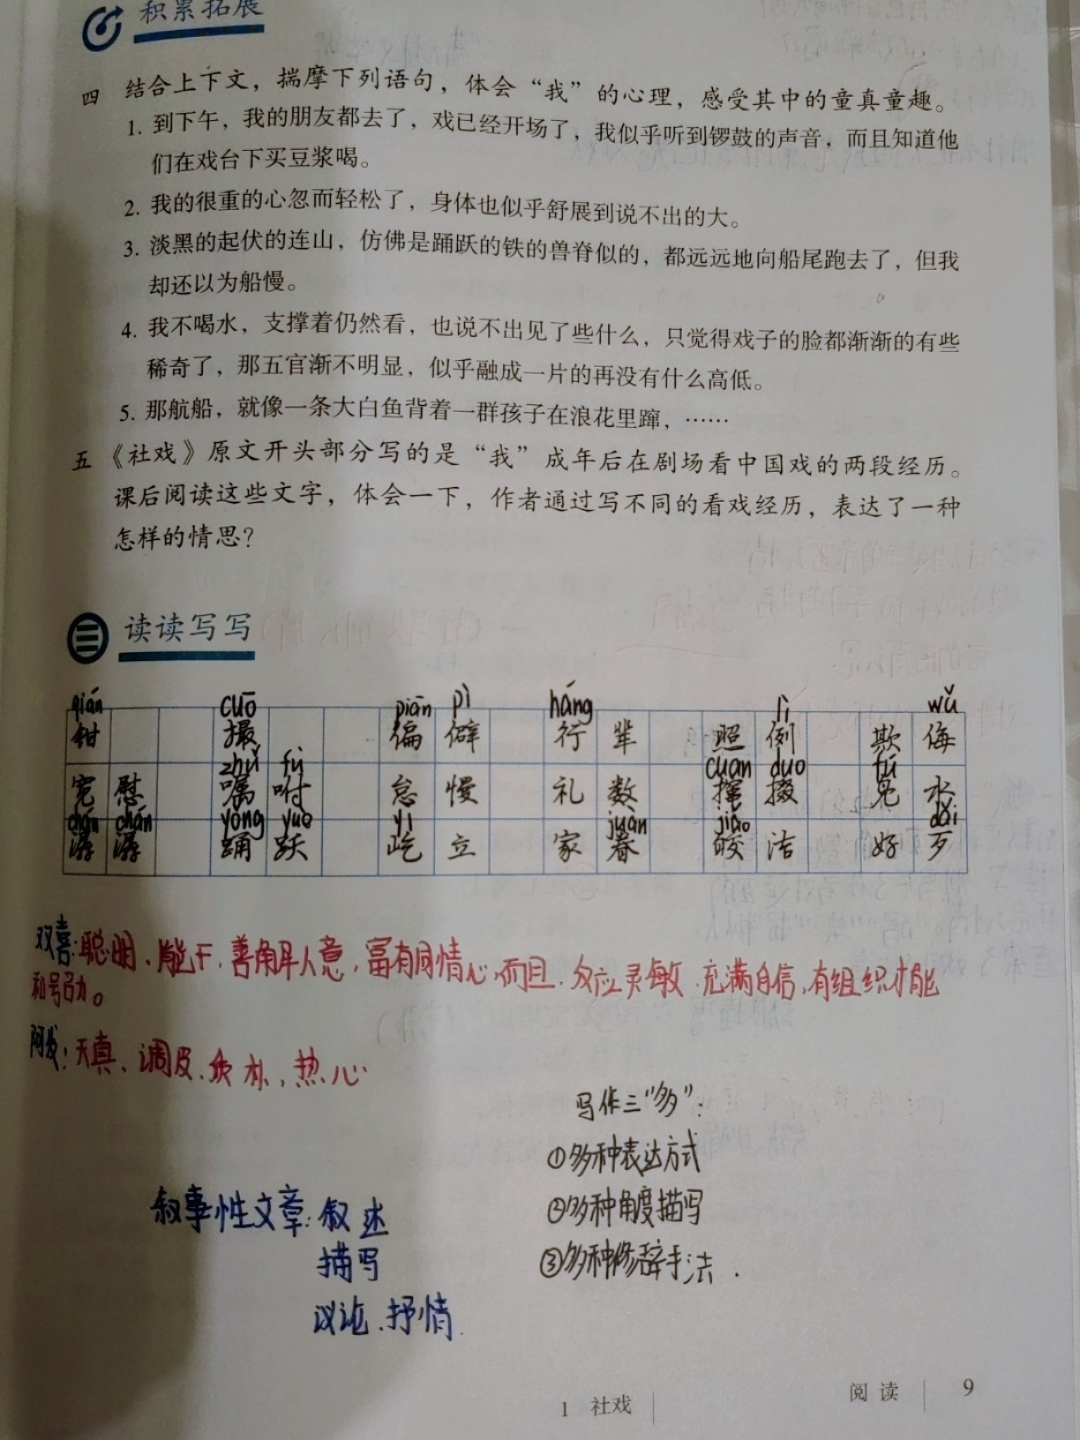 积累拓展
四 结合上下文，揣摩下列语句，体会“我”的心理，感受其中的童真童趣。
1. 到下午，我的朋友都去了，戏已经开场了，我似乎听到锣鼓的声音，而且知道他
们在戏台下买豆浆喝。
2. 我的很重的心忽而轻松了，身体也似乎舒展到说不出的大。
3. 淡黑的起伏的连山，仿佛是踊跃的铁的兽脊似的，都远远地向船尾跑去了，但我
却还以为船慢。
4. 我不喝水，支撑着仍然看，也说不出见了些什么，只觉得戏子的脸都渐渐的有些
稀奇了，那五官渐不明显，似乎融成一片的再没有什么高低。
5. 那航船，就像一条大白鱼背着一群孩子在浪花里蹿，……
五 《社戏》原文开头部分写的是“我”成年后在剧场看中国戏的两段经历。
课后阅读这些文字，体会一下，作者通过写不同的看戏经历，表达了一种
怎样的情思？
读读写写
qián cuō piān pì háng lì wǔ
钳 撮 偏僻 行辈 照例 欺侮
zhǔ fù cuan duo fú
宽慰 嘱咐 怠慢 礼数 撺掇 凫水
chán chán yǒng yuè yì juàn jiǎo dǎi
潺潺 踊跃 屹立 家眷 皎洁 好歹
双喜：聪明、能干、善解人意，富有同情心，而且，反应灵敏，充满自信，有组织才能
和号召力。
阿发：天真、调皮、质朴，热心
写作三“多”：
①多种表达方式
叙事性文章：叙述
②多种角度描写
描写
③多种修辞手法.
议论、抒情.
1 社戏
阅读 9